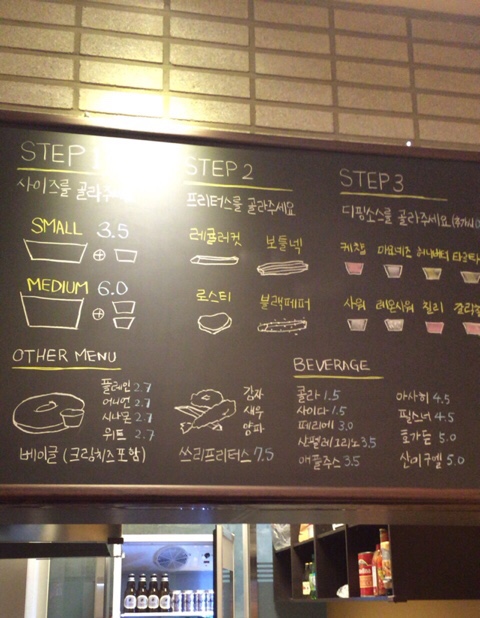 STEP 1
사이즈를 골라
SMALL 3.5
MEDIUM 6.0
STEP 2
프리터스를 골라주세요
레귤러컷 보틀넥
로스티 블랙페퍼
STEP 3
디핑소스를 골라주세요
케찹 마요네즈 허니버터 타르타
사워 레몬사워 칠리 갈릭
OTHER MENU
플레인 2.7
어니언 2.7
시나몬 2.7
위트 2.7
베이글 (크림치즈포함)
감자
새우
양파
쓰리프리터스 7.5
BEVERAGE
콜라 1.5
사이다 1.5
페리에 3.0
산펠레그리노 3.5
애플주스 3.5
아사히 4.5
필스너 4.5
호가든 5.0
산미구엘 5.0